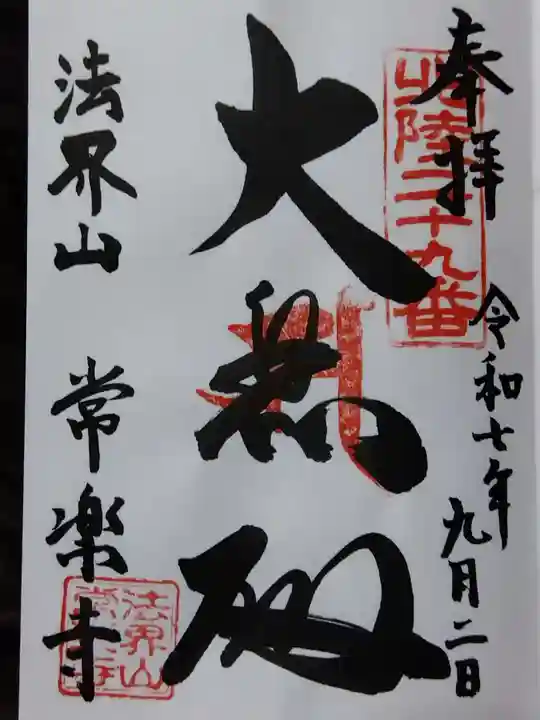 奉拝
北陸二十九番
令和七年
九月二日
大悲殿
法界山
常楽寺
法界山
常楽寺